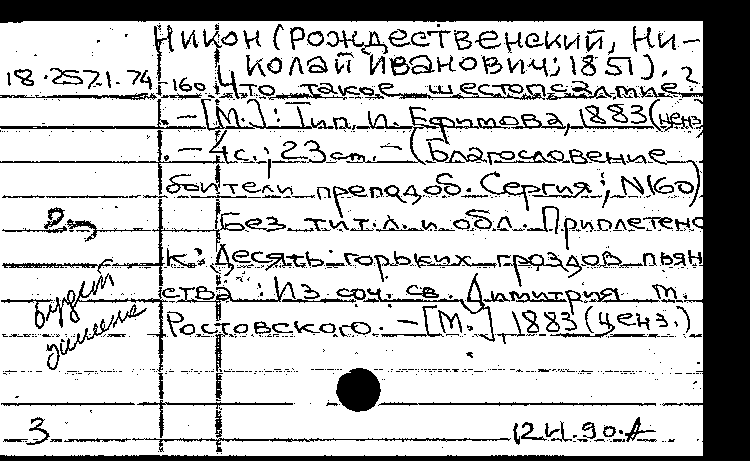 Никон (Рождественский, Ни-
колай Иванович; 1851).
18.257.1.74
-160 Что такое шестопсалмие?
. – [М.]: Тип. И. Ефимова, 1883 (ценз
. – 4 с.; 23 см. – (Благословение
обители преподоб. Сергия; N160)
Без тит. л. и обл. Приплетено
к: Десять горьких гроздов пьян
ства: Из соч. св. Димитрия м.
Ростовского. – [М.], 1883 (ценз.)
будет
3